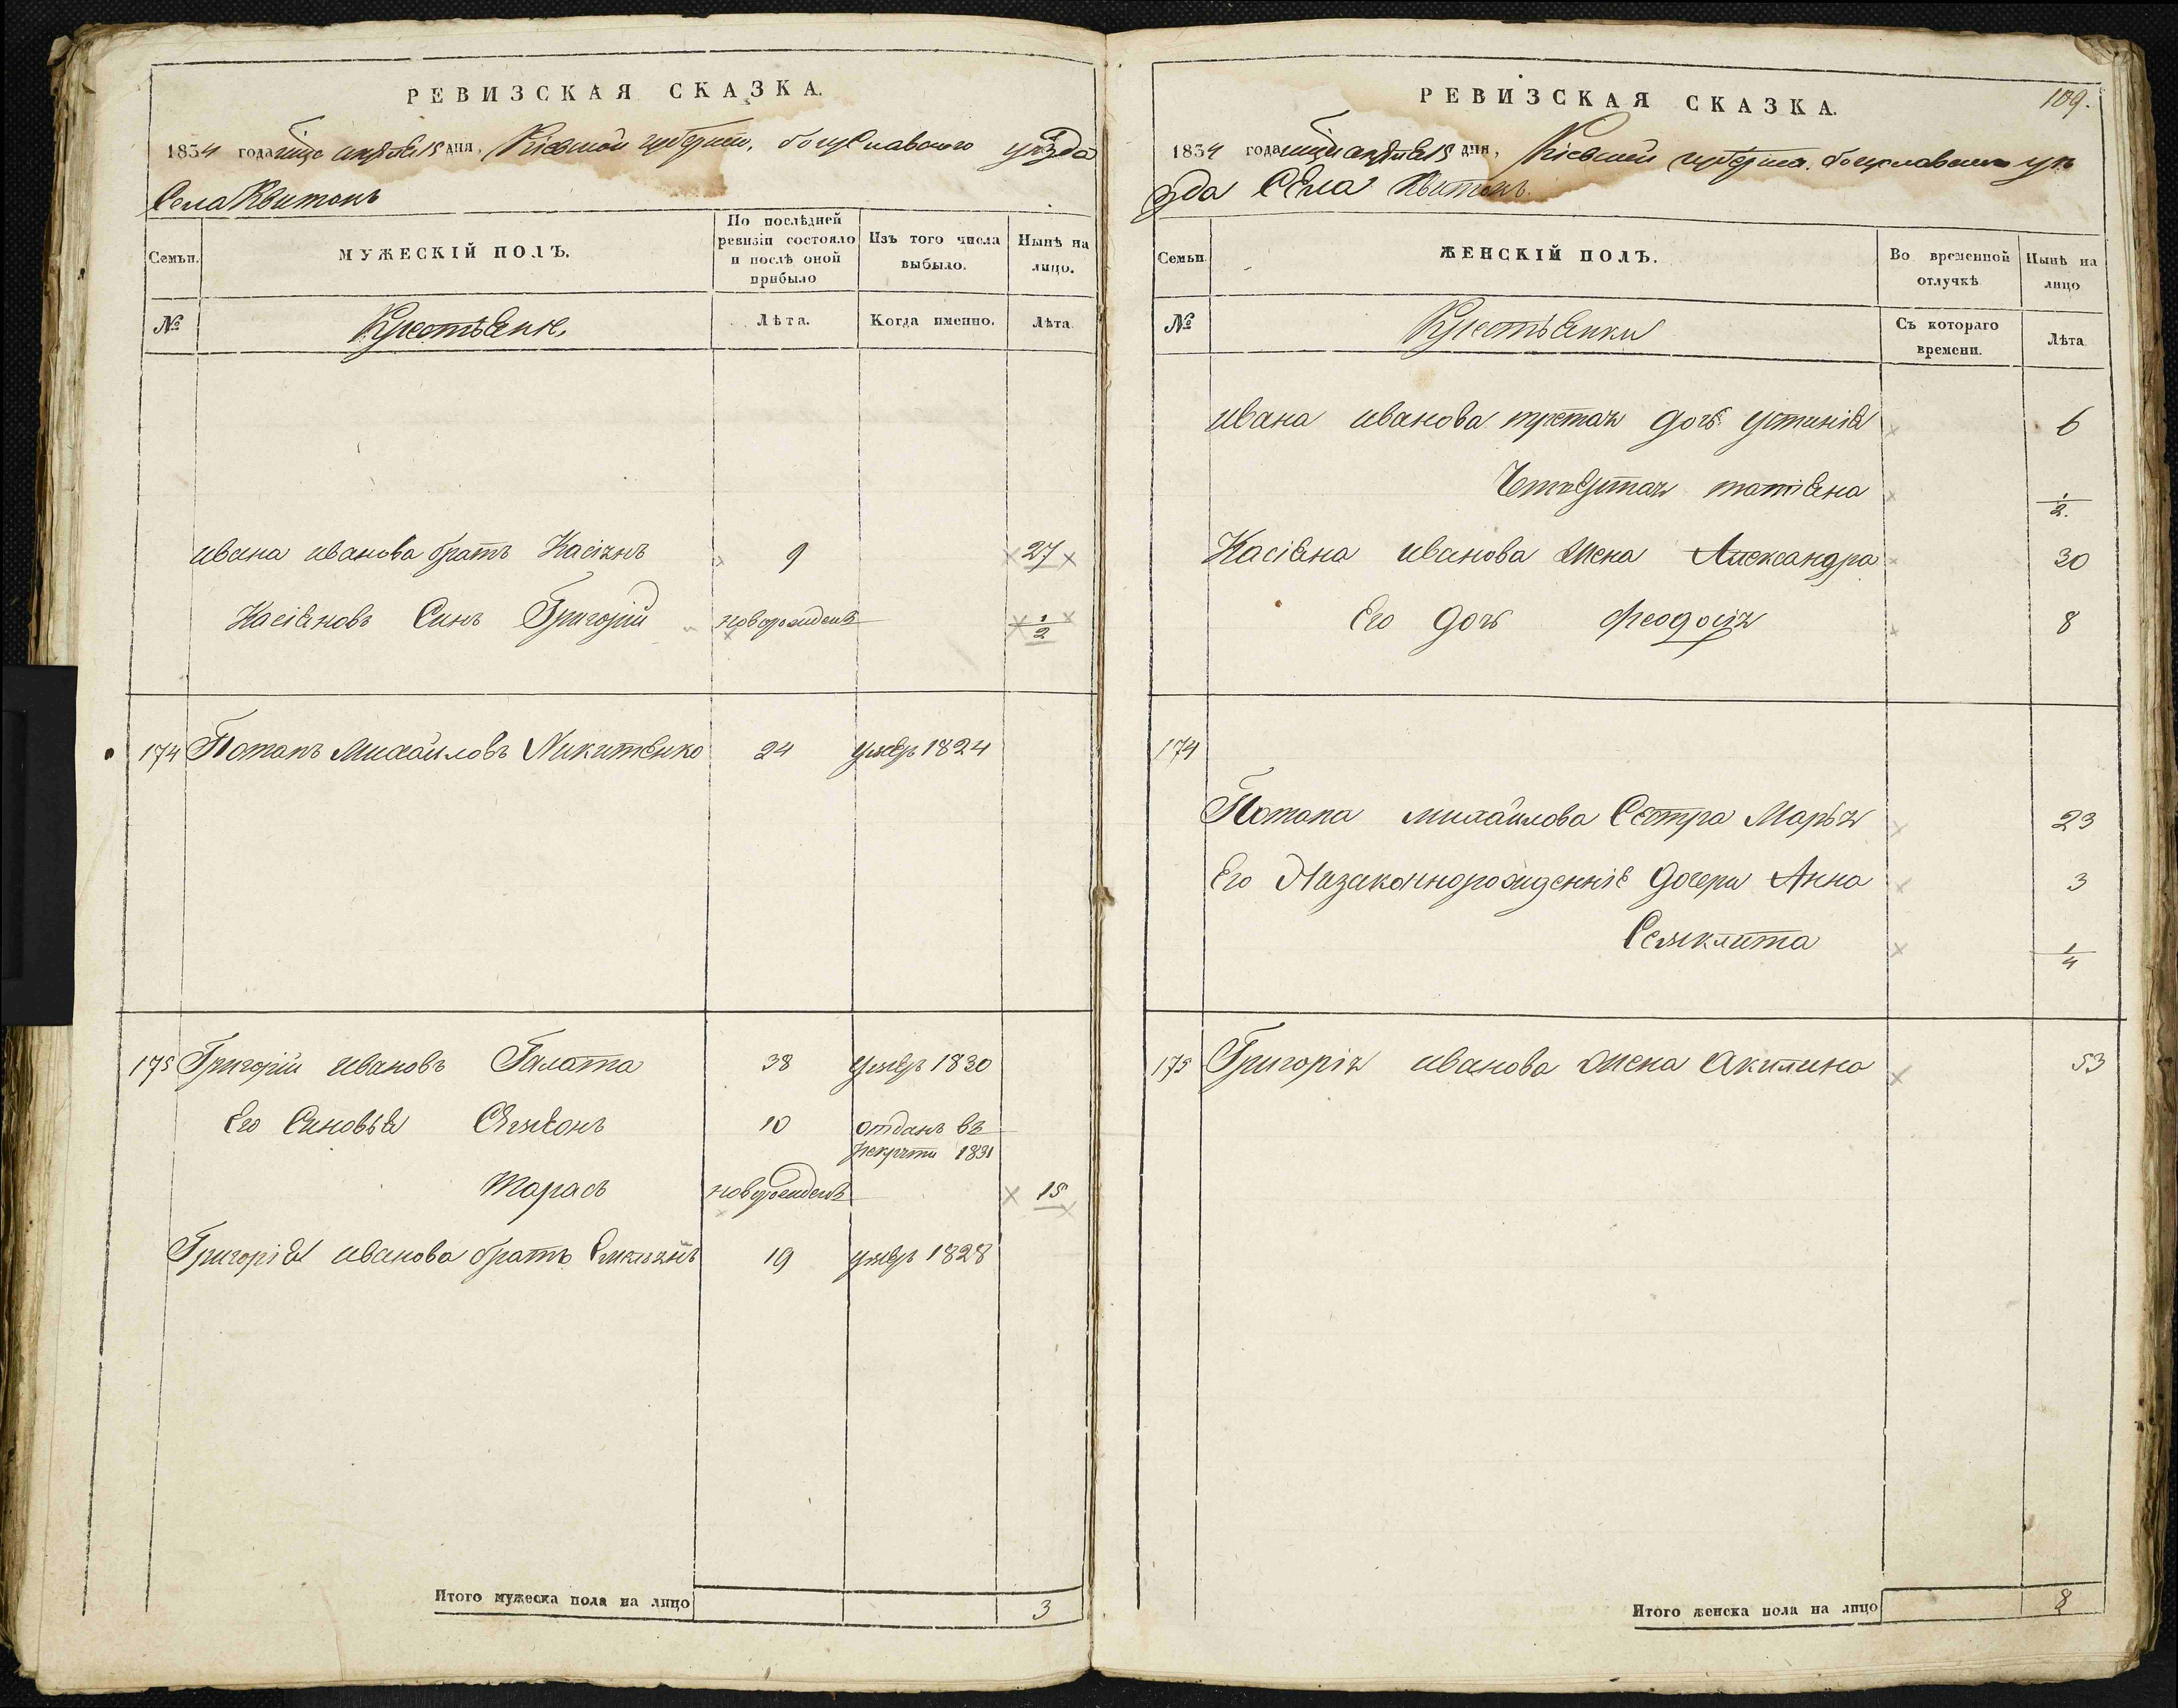 РЕВИЗСКАЯ СКАЗКА.
1834 года апреля 15 дня, Кіевской губерніи, богуславского уѣзда
Села Квитокъ
Семьи.
МУЖЕСКІЙ ПОЛЪ.
По послѣдней ревизіи состояло и послѣ оной прибыло
Изъ того числа выбыло.
Нынѣ на лицо.
№
Крестьяне
Лѣта.
Когда именно.
Лѣта
ивана иванова братъ Касіянъ 9 27
Касіяновъ Синъ Григорій новорожденъ 1/2
174 Потапъ Михайловъ Никитенко 24 умеръ 1824
175 Григорій ивановъ Галата 38 умеръ 1830
Его Синовья Семеонъ 10 отданъ въ
рекруты 1831
Тарасъ новорожденъ 15
Григорія иванова братъ 19 умеръ 1828
Итого мужеска пола на лицо 3
РЕВИЗСКАЯ СКАЗКА.
109.
1834 года апреля 15 дня, Кіевской губерніи. богуславского уѣ
зда Села Квитокъ.
Семьи
ЖЕНСКІЙ ПОЛЪ.
Во временной отлучкѣ
Нынѣ на лицо
№
Крестьянки
Съ котораго времени.
Лѣта
ивана иванова третая дочь Устинія 6
Четвертая татіяна 1/2.
Касіяна иванова жена Александра 30
Его дочь Феодосія 8
174
Потапа михайлова Сестра Марья 23
Его Низаконнорожденніе дочери Анна 3
1/4
175 Григорія иванова жена Акилина 53
Итого женска пола на лицо 8